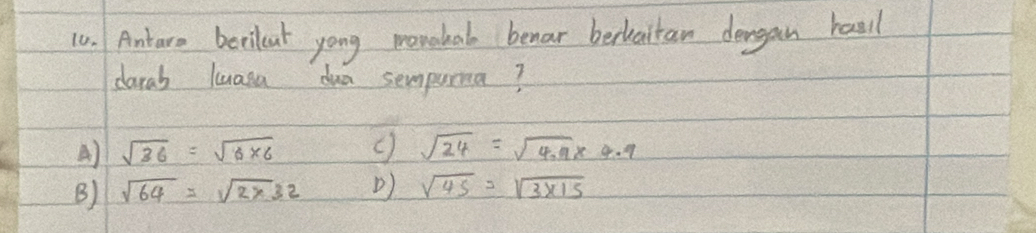 10. Antara berikut yang manakah benar berkaitan dengan hasil
darab kuasa dua sempurna?
A) √36 = √6×6 C) √24 = √4.9× 4.9
B) √64 = √2×32 D) √45 = √3×15